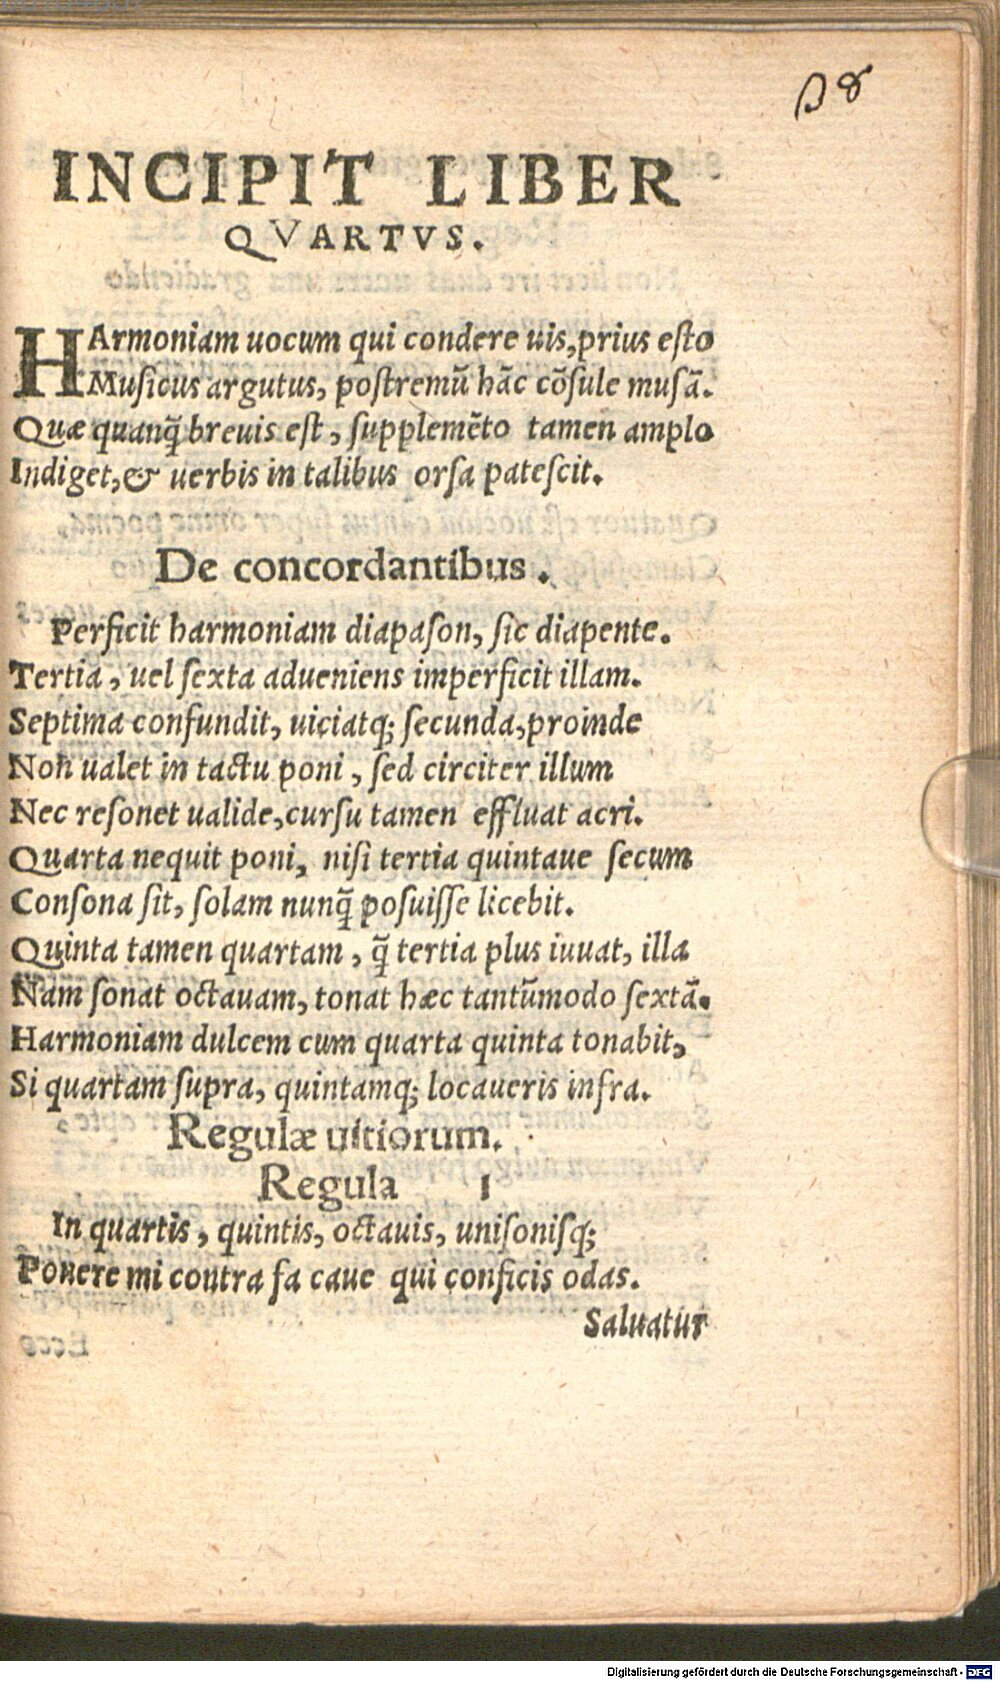 38
INCIPIT LIBER
QVARTVS.
HArmoniam uocum qui condere uis, prius esto
Musicus argutus, postremū hāc cōsule musā.
Quæ quanq̃ breuis est, supplemēto tamen amplo
Indiget, & uerbis in talibus orsa patescit.
De concordantibus.
Perficit harmoniam diapason, sic diapente.
Tertia, uel sexta adueniens imperficit illam.
Septima confundit, uiciatq; secunda, proinde
Non ualet in tactu poni, sed circiter illum
Nec resonet ualide, cursu tamen effluat acri.
Quarta nequit poni, nisi tertia quintaue secum
Consona sit, solam nunq̃ posuisse licebit.
Quinta tamen quartam, q̃ tertia plus iuuat, illa
Nam sonat octauam, tonat hæc tantūmodo sextā.
Harmoniam dulcem cum quarta quinta tonabit,
Si quartam supra, quintamq; locaueris infra.
Regulæ uitiorum.
Regula 1
In quartis, quintis, octauis, unisonisq;
Ponere mi contra fa caue qui conficis odas.
Saluatur
Digitalisierung gefördert durch die Deutsche Forschungsgemeinschaft - DFG